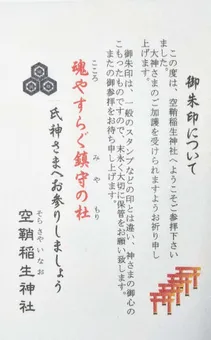 御朱印について
この度は、空鞘稲生神社へようこそご参拝下さい
ました。
大神さまのご加護を受けられますようお祈り申し
上げます。
御朱印は、一般のスタンプなどの印とは違い、神さまの御心の
こもったものですので、末永く大切に保管をお願い致します。
またの御参拝をお待ち申し上げます。
魂やすらぐ鎮守の杜
こころ
みや
もり
氏神さまへお参りしましょう
空鞘稲生神社
そらさやいなお